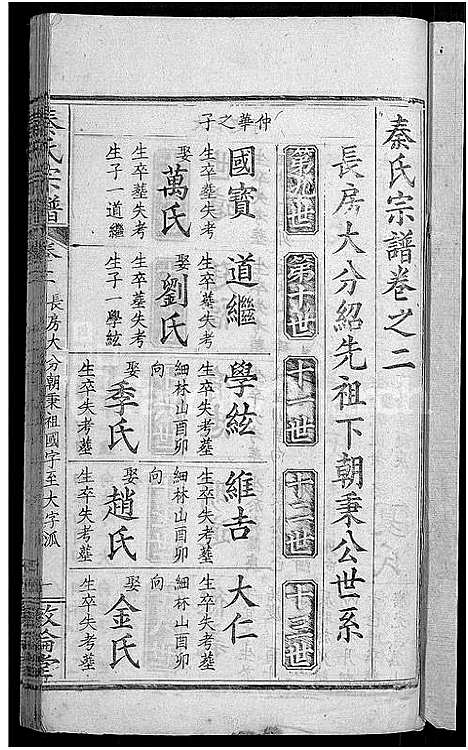 秦氏宗譜卷之二
長房大分紹先祖下朝秉公世系
第九世
第十世
十一世
十二世
十三世
仲華之子
國寳
生卒塟失考
娶萬氏
生卒塟失考
生子一道繼
道繼
生卒塟失考
娶劉氏
生卒塟失考
生子一學絃
學絃
生卒失考塟
細林山酉卯
向
娶季氏
生卒失考塟
維吉
生卒失考塟
細林山酉卯
向
娶趙氏
生卒失考塟
大仁
生卒失考塟
細林山酉卯
向
娶金氏
生卒失考塟
秦氏宗譜
卷二
長房大分朝秉祖國字至大字派
一
敘倫堂